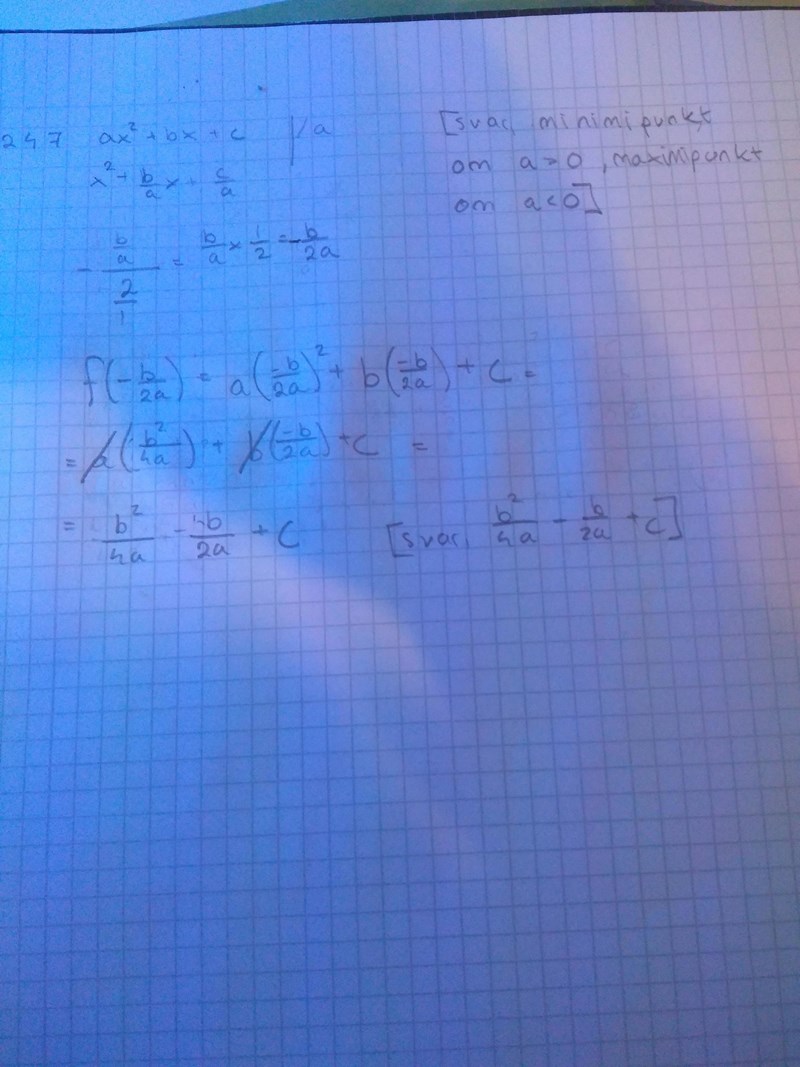 247 ax² + bx + c |/a
x² + b/a x + c/a
[svar, minimipunkt
om a > 0, maximipunkt
om a < 0]
- (b/a)/(2/1) = b/a × 1/2 = -b/2a
f(-b/2a) = a(-b/2a)² + b(-b/2a) + c =
= a(b²/4a) + b(-b/2a) + c =
= b²/4a - b/2a + c
[svar, b²/4a - b/2a + c]